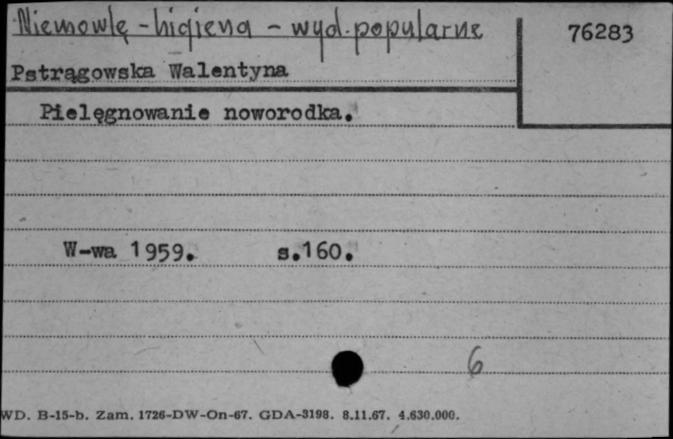 Niemowlę - higiena - wyd. popularne
76283
Pstrągowska Walentyna
Pielęgnowanie noworodka.
W-wa 1959. s.160.
6
WD. B-15-b. Zam. 1726-DW-On-67. GDA-3198. 8.11.67. 4.630.000.